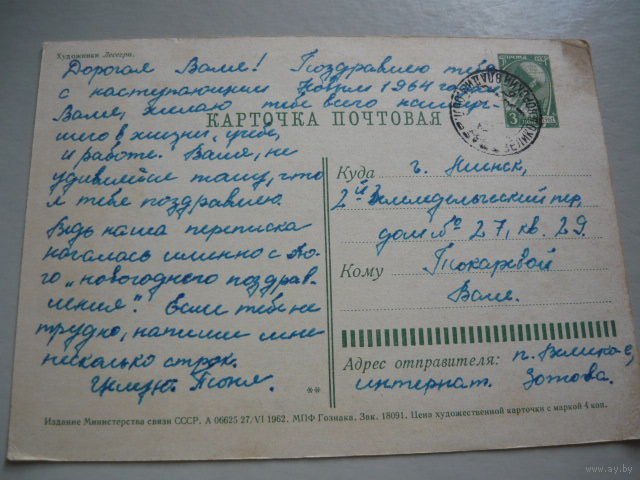 Художники Лесегри.
Дорогая Валя! Поздравляю тебя
с наступающим Новым 1964 годом.
Валя, желаю тебе всего наилуч-
шего в жизни, учебе,
и работе. Валя, не
удивляйся тому, что
я тебя поздравляю.
Ведь наша переписка
началась именно с
го "новогоднего поздрав-
ления". Если тебе не
трудно, напиши мне
несколько строк.
Целую. Тоня.
**
ПОЧТА СССР
3
КАРТОЧКА ПОЧТОВАЯ
Куда г. Минск,
2й Земледельческий пер,
дом № 27, кв. 29.
Кому Токаревой
Вале.
Адрес отправителя: п. Великое,
интернат. Зотова.
Издание Министерства связи СССР. А 06625 27/VI 1962. МПФ Гознака. Зак. 18091. Цена художественной карточки с маркой 4 коп.
www.ay.by